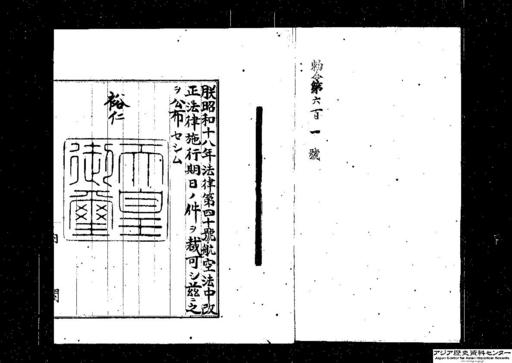 勅令第六百一號
朕昭和十八年法律第四十號航空法中改
正法律施行期日ノ件ヲ裁可シ茲ニ之
ヲ公布セシム
裕仁
天皇
御璽
アジア歴史資料センター
Japan Center for Asian Historical Records